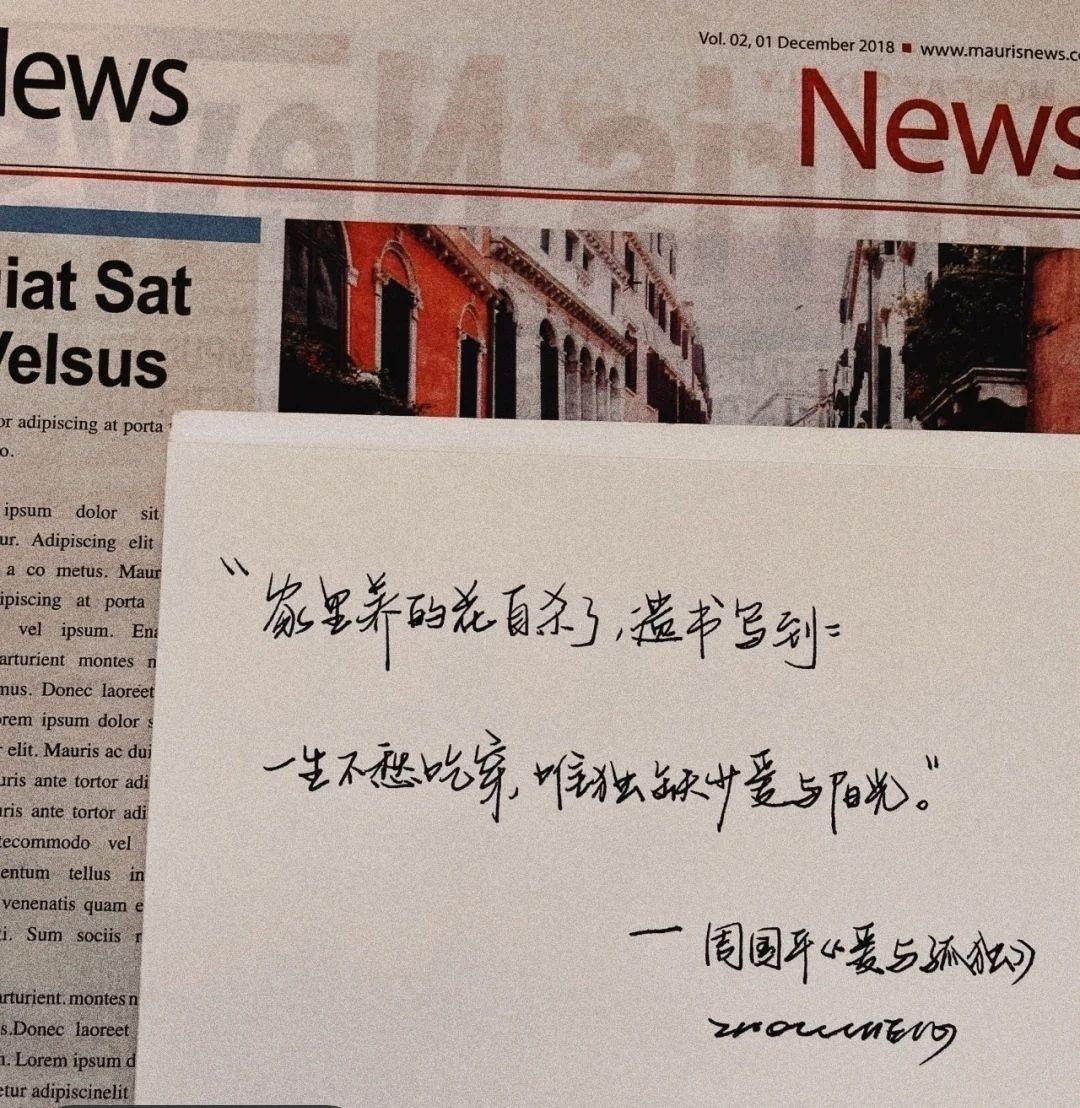 News
Vol. 02, 01 December 2018 ■ www.maurisnews.c
News
iat Sat
Velsus
or adipiscing at porta
o.
ipsum dolor sit
ur. Adipiscing elit
a co metus. Maur
ipiscing at porta
vel ipsum. En
arturient montes n
mus. Donec laoreet
orem ipsum dolor s
elit. Mauris ac dui
uris ante tortor adi
ris ante tortor adi
tecommodo vel
entum tellus in
venenatis quam e
ti. Sum sociis r
arturient. montes n
s.Donec laoreet
n. Lorem ipsum d
etur adipiscinelit
“家里养的花自杀了,遗书写到:
一生不愁吃穿,唯独缺少爱与阳光。”
— 周国平《爱与孤独》